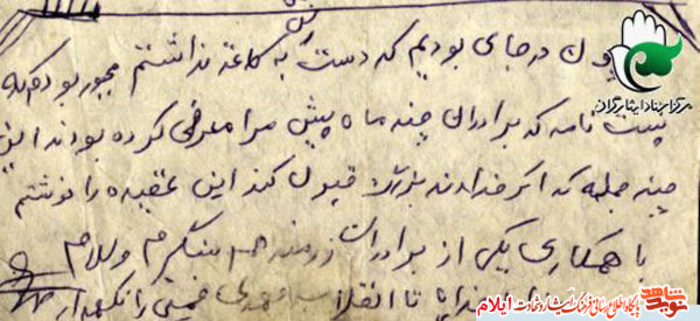 چون در جای بودیم که دست به کاغذ نداشتم مجبور بودم که
پست نامه که برادران چند ماه پیش مرا معرفی کرده بودند این
چند جمله که اگر خداوند بزرگ قبول کند این عقیده را نوشتم
با همکاری یکی از برادران رزمنده هم سنگرم والسلام
خدایا تا انقلاب مهدی خمینی را نگهدار
مرکز اسناد ایثارگران
نوید شاهد
پایگاه اطلاع رسانی فرهنگ ایثار و شهادت ایلام